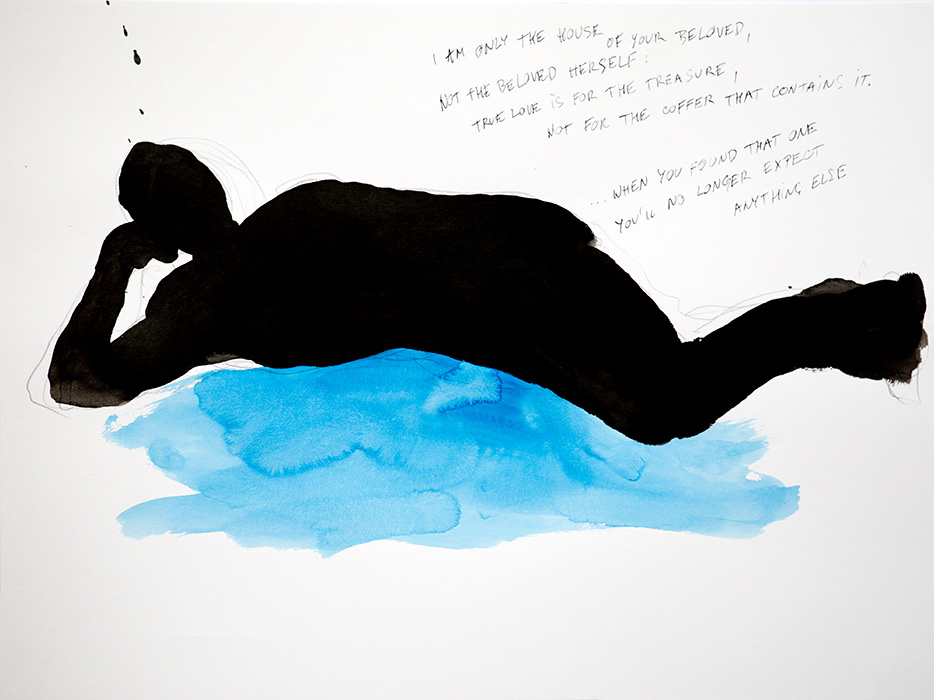 I AM ONLY THE HOUSE OF YOUR BELOVED,
NOT THE BELOVED HERSELF:
TRUE LOVE IS FOR THE TREASURE,
NOT FOR THE COFFER THAT CONTAINS IT.
...WHEN YOU FOUND THAT ONE
YOU'LL NO LONGER EXPECT
ANYTHING ELSE